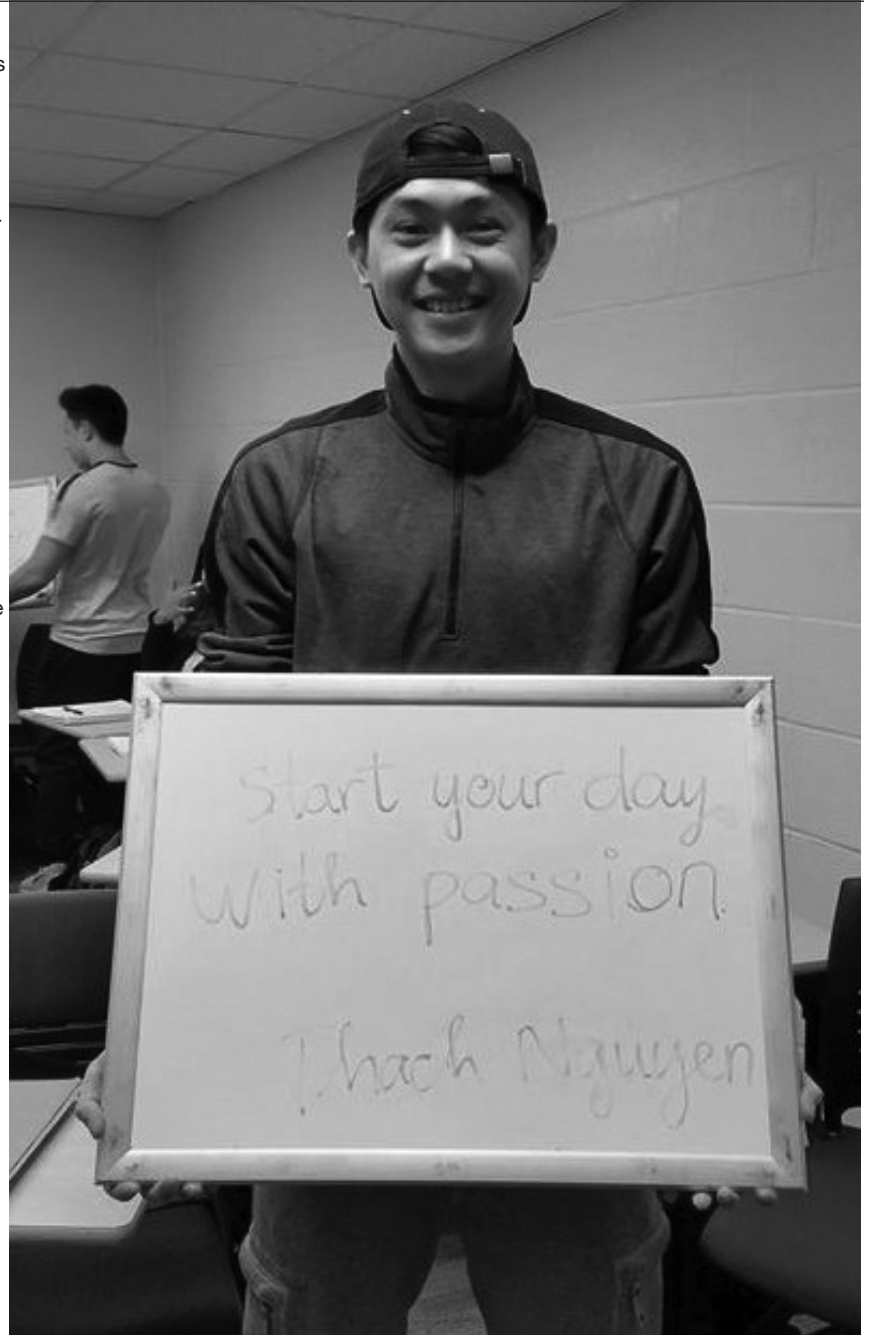 s
e
Start your day
with passion.
Thach Nguyen